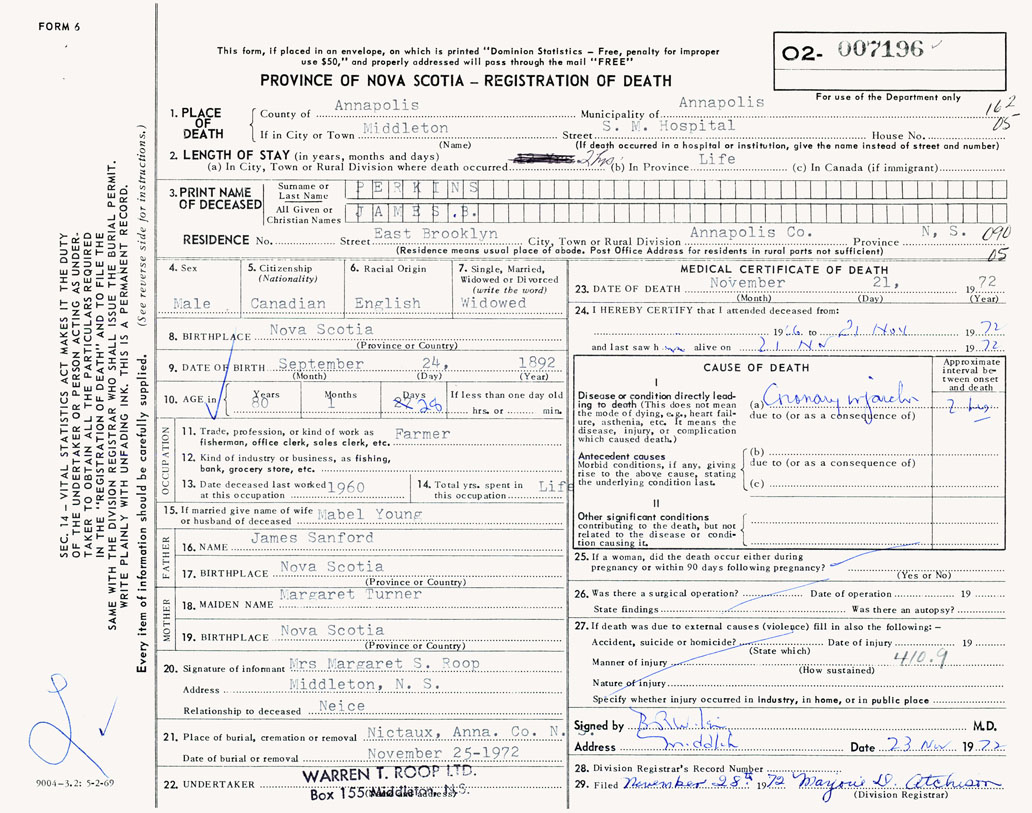 FORM 6
This form, if placed in an envelope, on which is printed "Dominion Statistics – Free, penalty for improper
use $50," and properly addressed will pass through the mail "FREE"
PROVINCE OF NOVA SCOTIA – REGISTRATION OF DEATH
O2- 007196
For use of the Department only
162
05
1. PLACE OF DEATH
County of Annapolis Municipality of Annapolis
If in City or Town Middleton Street S. M. Hospital House No.
(Name) (If death occurred in a hospital or institution, give the name instead of street and number)
2. LENGTH OF STAY (in years, months and days)
(a) In City, Town or Rural Division where death occurred 2 hrs. (b) In Province Life (c) In Canada (if immigrant)
3. PRINT NAME OF DECEASED
Surname or Last Name PERKINS
All Given or Christian Names JAMES.B.
RESIDENCE No. Street East Brooklyn City, Town or Rural Division Annapolis Co. Province N, S. 090
(Residence means usual place of abode. Post Office Address for residents in rural parts not sufficient) 05
4. Sex
Male
5. Citizenship
(Nationality)
Canadian
6. Racial Origin
English
7. Single, Married,
Widowed or Divorced
(write the word)
Widowed
8. BIRTHPLACE Nova Scotia
(Province or Country)
9. DATE OF BIRTH September 24, 1892
(Month) (Day) (Year)
10. AGE in Years Months Days If less than one day old
80 1 28 hrs. or min.
OCCUPATION
11. Trade, profession, or kind of work as Farmer
fisherman, office clerk, sales clerk, etc.
12. Kind of industry or business, as fishing,
bank, grocery store, etc.
13. Date deceased last worked 1960
at this occupation
14. Total yrs. spent in Life
this occupation
15. If married give name of wife Mabel Young
or husband of deceased
FATHER
16. NAME James Sanford
17. BIRTHPLACE Nova Scotia
(Province or Country)
MOTHER
18. MAIDEN NAME Margaret Turner
19. BIRTHPLACE Nova Scotia
(Province or Country)
20. Signature of informant Mrs Margaret S. Roop
Address Middleton, N. S.
Relationship to deceased Neice
21. Place of burial, cremation or removal Nictaux, Anna. Co. N.
Date of burial or removal November 25-1972
22. UNDERTAKER WARREN T. ROOP LTD.
Box 155 Middleton, N.S.
(Name and address)
MEDICAL CERTIFICATE OF DEATH
23. DATE OF DEATH November 21, 1972
(Month) (Day) (Year)
24. I HEREBY CERTIFY that I attended deceased from:
1966 to 21 Nov 1972
and last saw him alive on 21 Nov 1972
CAUSE OF DEATH
Approximate
interval be-
tween onset
and death
I
Disease or condition directly lead-
ing to death (This does not mean
the mode of dying, e.g., heart fail-
ure, asthenia, etc. It means the
disease, injury, or complication
which caused death.)
(a) Coronary infarction 2 hrs
due to (or as a consequence of)
Antecedent causes
Morbid conditions, if any, giving
rise to the above cause, stating
the underlying condition last.
(b)
due to (or as a consequence of)
(c)
II
Other significant conditions
contributing to the death, but not
related to the disease or condi-
tion causing it.
25. If a woman, did the death occur either during
pregnancy or within 90 days following pregnancy?
(Yes or No)
26. Was there a surgical operation? Date of operation 19
State findings Was there an autopsy?
27. If death was due to external causes (violence) fill in also the following: –
Accident, suicide or homicide? Date of injury 19
(State which)
Manner of injury 410.9
(How sustained)
Nature of injury
Specify whether injury occurred in industry, in home, or in public place
Signed by M.D.
Address Date 23 Nov 1972
28. Division Registrar's Record Number
29. Filed November 28th 1972 Marjorie D. Atchison
(Division Registrar)
SEC. 14 – VITAL STATISTICS ACT MAKES IT THE DUTY
OF THE UNDERTAKER OR PERSON ACTING AS UNDER-
TAKER TO OBTAIN ALL THE PARTICULARS REQUIRED
IN THE "REGISTRATION OF DEATH" AND TO FILE THE
SAME WITH THE DIVISION REGISTRAR WHO SHALL ISSUE THE BURIAL PERMIT.
WRITE PLAINLY WITH UNFADING INK. THIS IS A PERMANENT RECORD.
Every item of information should be carefully supplied. (See reverse side for instructions.)
9004-3.2: 5-2-69